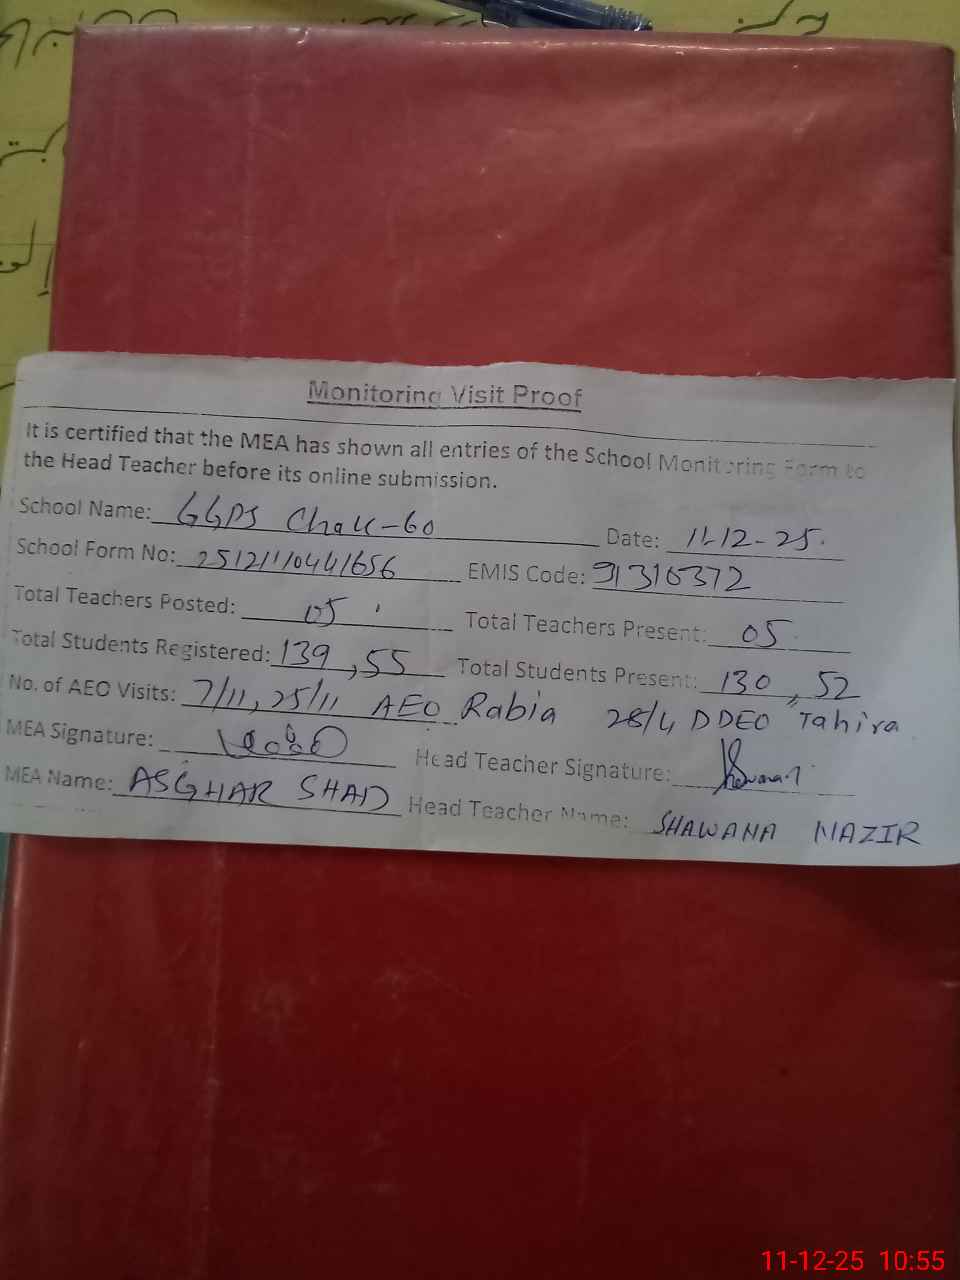 Monitoring Visit Proof
It is certified that the MEA has shown all entries of the School Monitoring Form to
the Head Teacher before its online submission.
School Name: GGPS Chak-60 Date: 11-12-25.
School Form No: 25121110441656 EMIS Code: 91310372
Total Teachers Posted: 05 Total Teachers Present: 05
Total Students Registered: 139, 55 Total Students Present: 130, 52
No. of AEO Visits: 7/11, 25/11 AEO Rabia 28/4 DDEO Tahira
MEA Signature: Head Teacher Signature:
MEA Name: ASGHAR SHAD Head Teacher Name: SHAWANA NAZIR
11-12-25 10:55